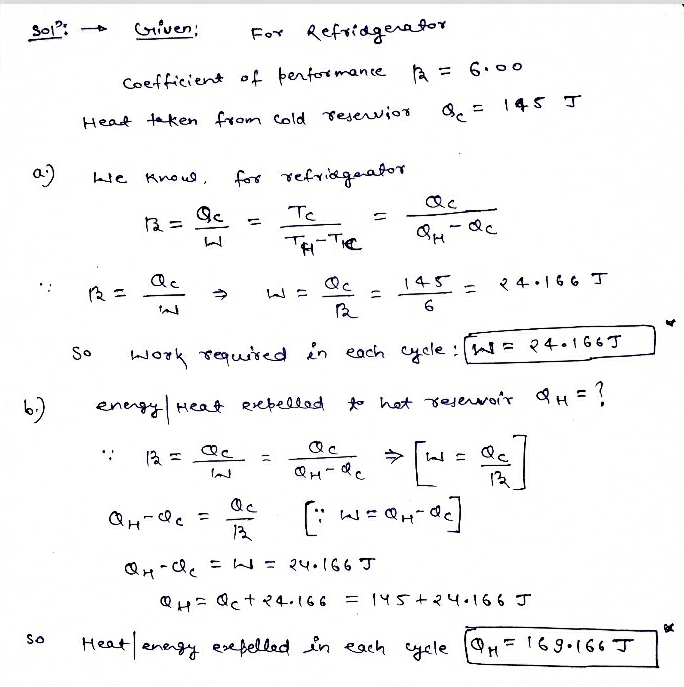 Solⁿ: → Given: For Refridgerator
Coefficient of performance β = 6.00
Heat taken from cold reservior Qc = 145 J
a.) We know, for refridgerator
β = Qc/W = Tc/(TH-Tc) = Qc/(QH-Qc)
∵ β = Qc/W ⇒ W = Qc/β = 145/6 = 24.166 J
So work required in each cycle: W = 24.166J
b.) energy/Heat expelled to hot reservoir QH = ?
∵ β = Qc/W = Qc/(QH-Qc) ⇒ [W = Qc/β]
QH-Qc = Qc/β [∵ W = QH-Qc]
QH-Qc = W = 24.166 J
QH = Qc + 24.166 = 145 + 24.166 J
So Heat/energy expelled in each cycle QH = 169.166 J